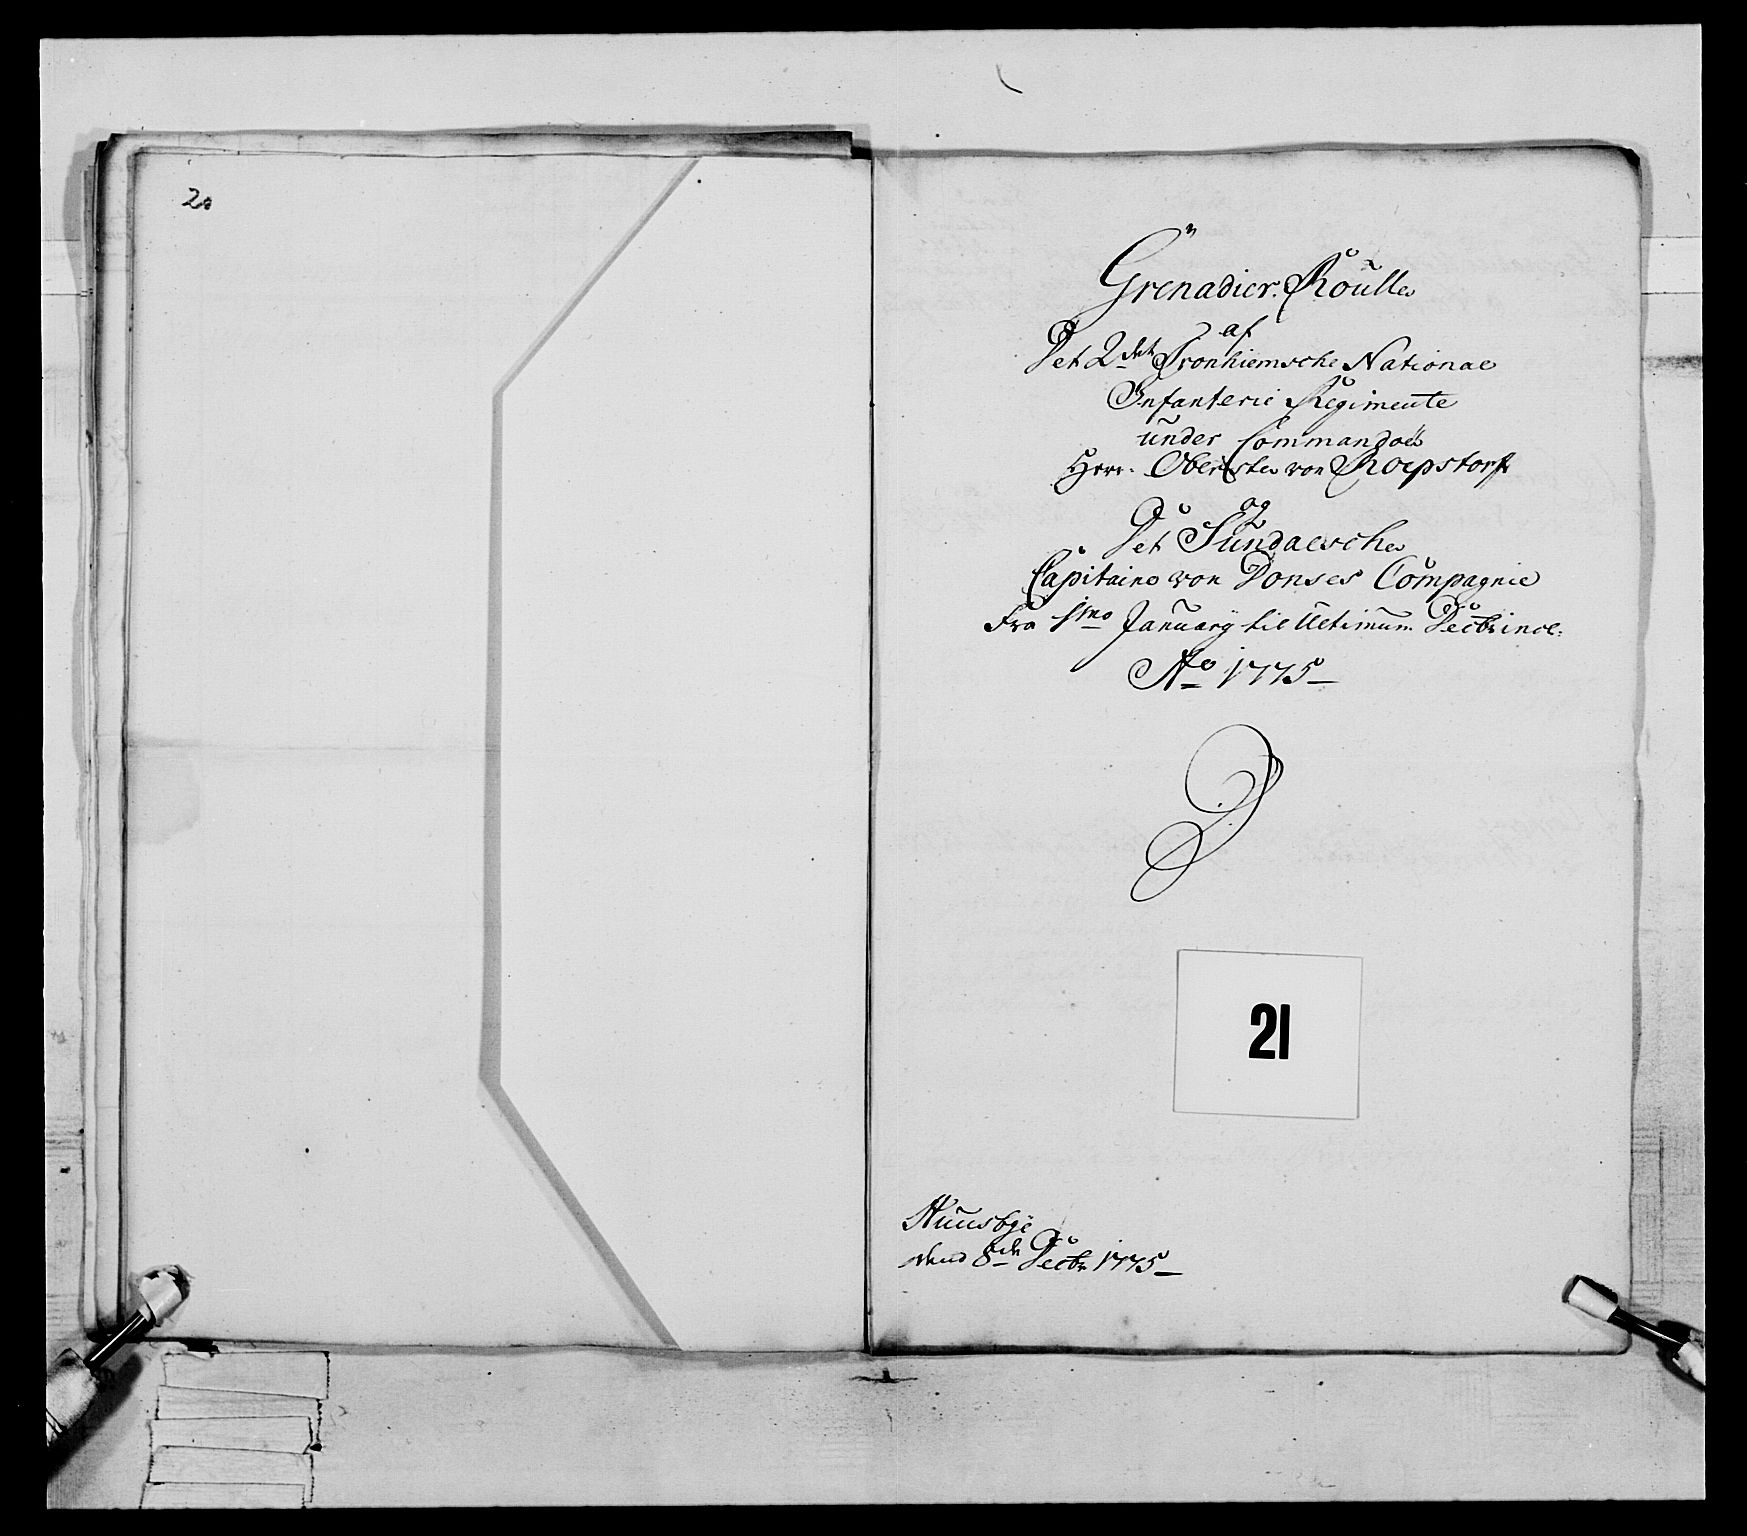 20
Grenadier Roulle
af
Det 2det Tronhiemsche National
Infanterie Regimente
under Commando
Herr Oberste von Roepstorff
og
Det Sundalsche
Capitaine von Donses Compagnie
Fra 1mo January til Ultimum Decbr incl:
Ao 1775
21
Huusbye
dend 8de Decbr 1775